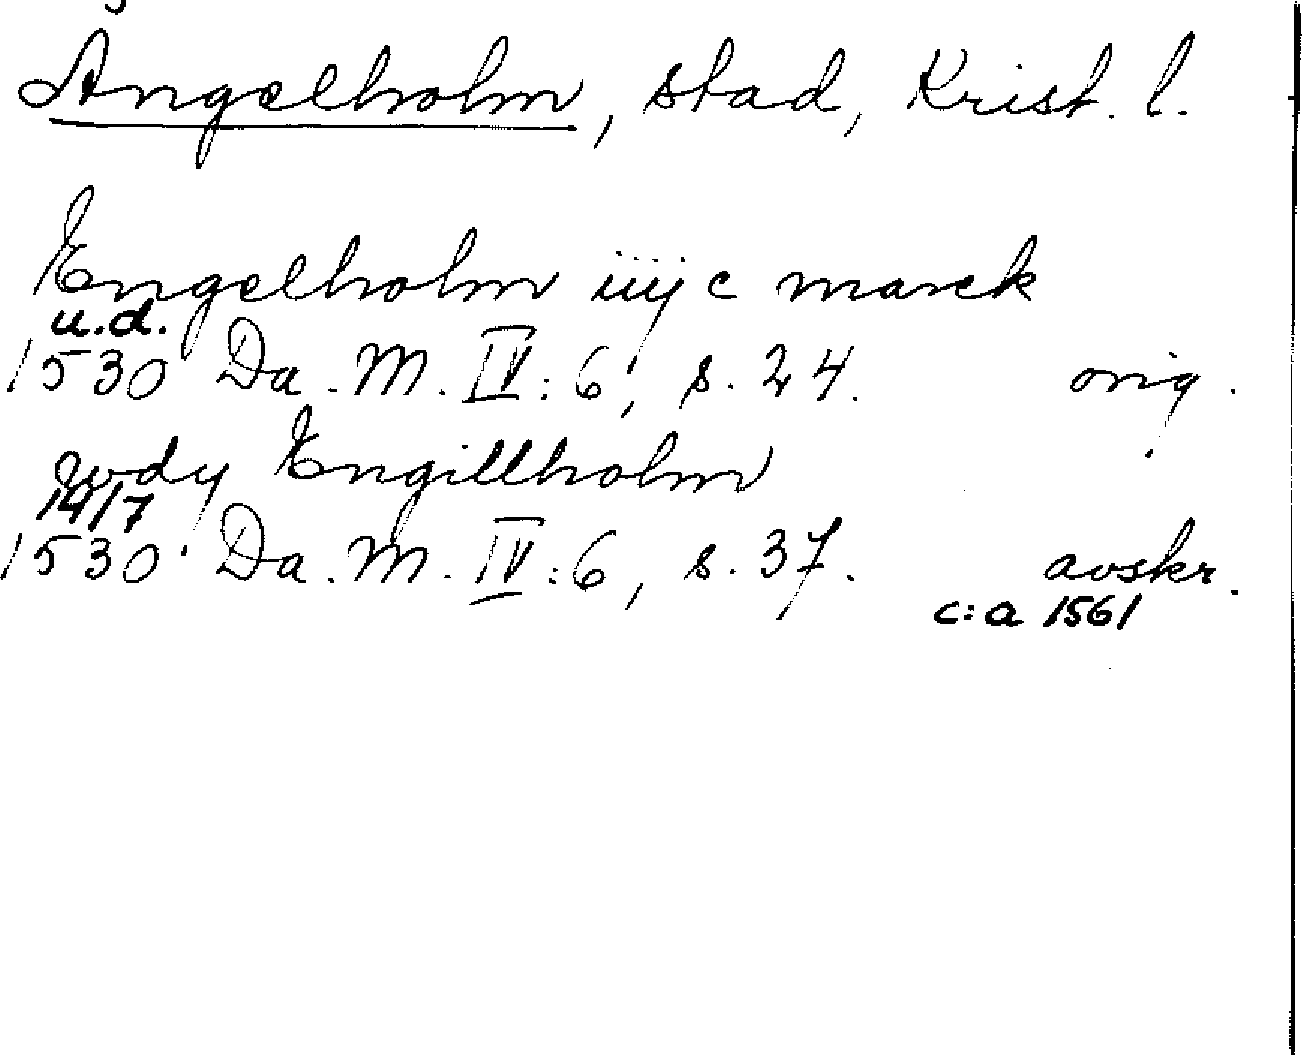 Ängelholm, stad, Krist. l.
Engelholm iiij c marck
u.d.
1530 Da. M. IV:6, s. 24. orig.
wdy Engillholm
14/7
1530 Da. M. IV:6, s. 37. avskr.
c:a 1561